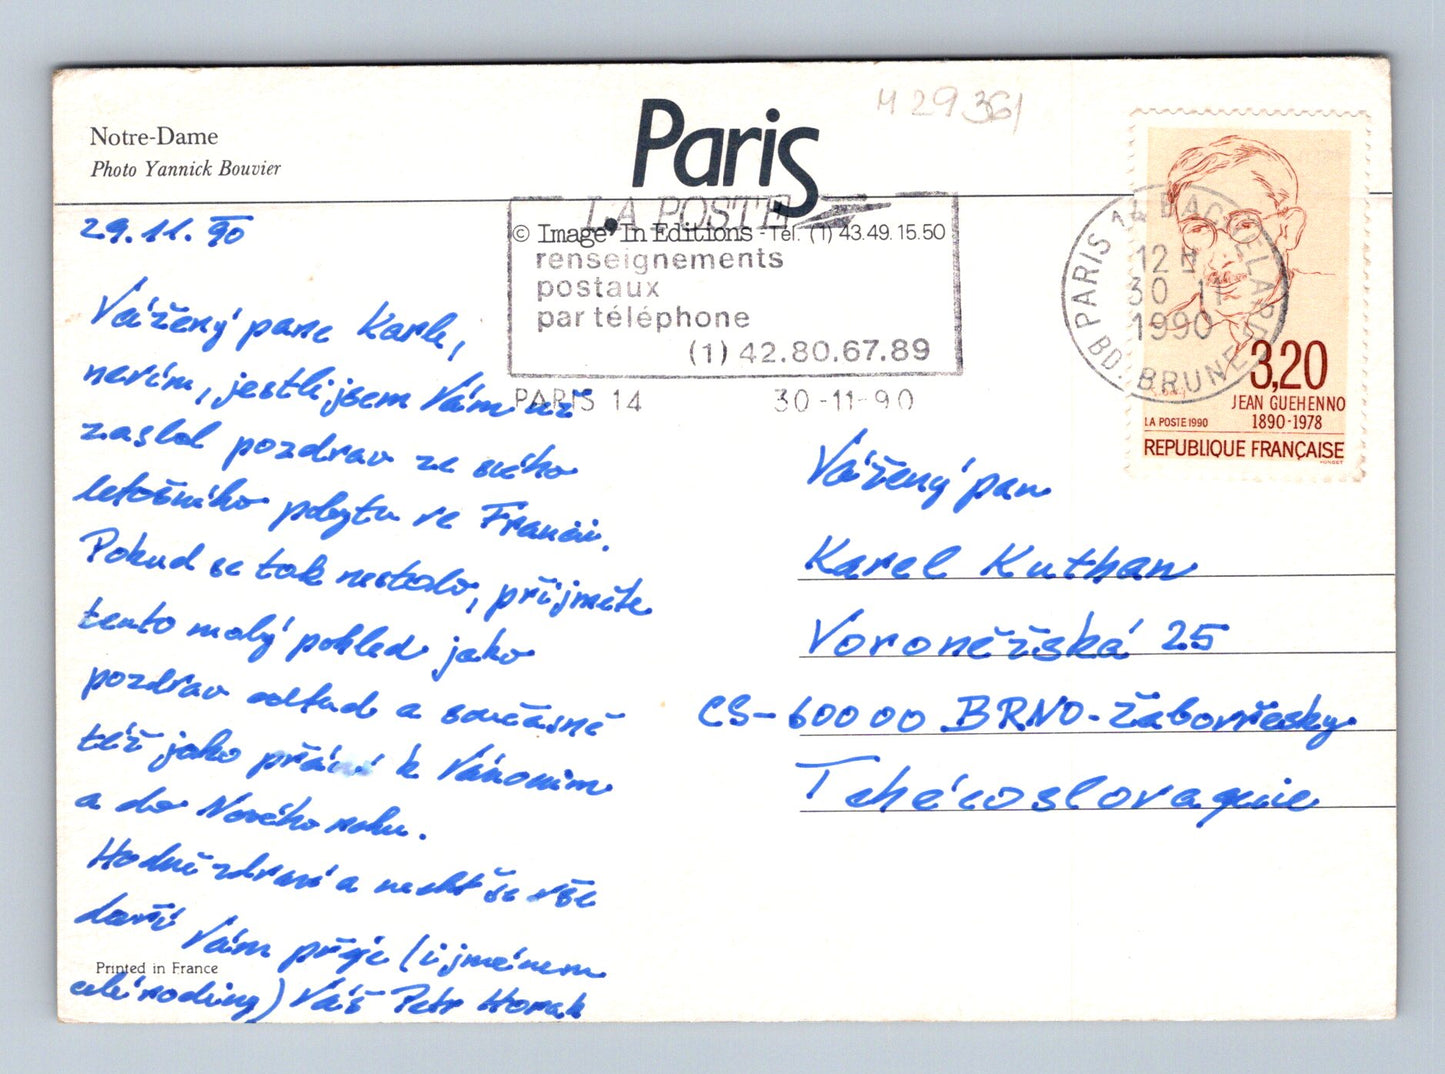 Notre-Dame
Photo Yannick Bouvier
Paris
M 29361
© Image' In Editions - Tél. (1) 43.49.15.50
LA POSTE
renseignements
postaux
par téléphone
(1) 42.80.67.89
PARIS 14 30-11-90
PARIS 14 BD. BRUNE
12 H
30 11
1990
3,20
JEAN GUEHENNO
1890-1978
LA POSTE 1990
REPUBLIQUE FRANÇAISE
29.11.90
Vážený pane Karle,
nevím, jestli jsem Vám už
zaslal pozdrav ze svého
letošního pobytu ve Francii.
Pokud se tak nestalo, přijměte
tento malý pohled jako
pozdrav odtud a současně
též jako přání k Vánocům
a do Nového roku.
Hodně zdraví a nechť se vše
daří Vám přeje (i jménem
celé rodiny) Váš Petr Horak
Printed in France
Vážený pan
Karel Kuthan
Voroněžská 25
CS-60000 BRNO-Žabovřesky
Tchécoslovaquie